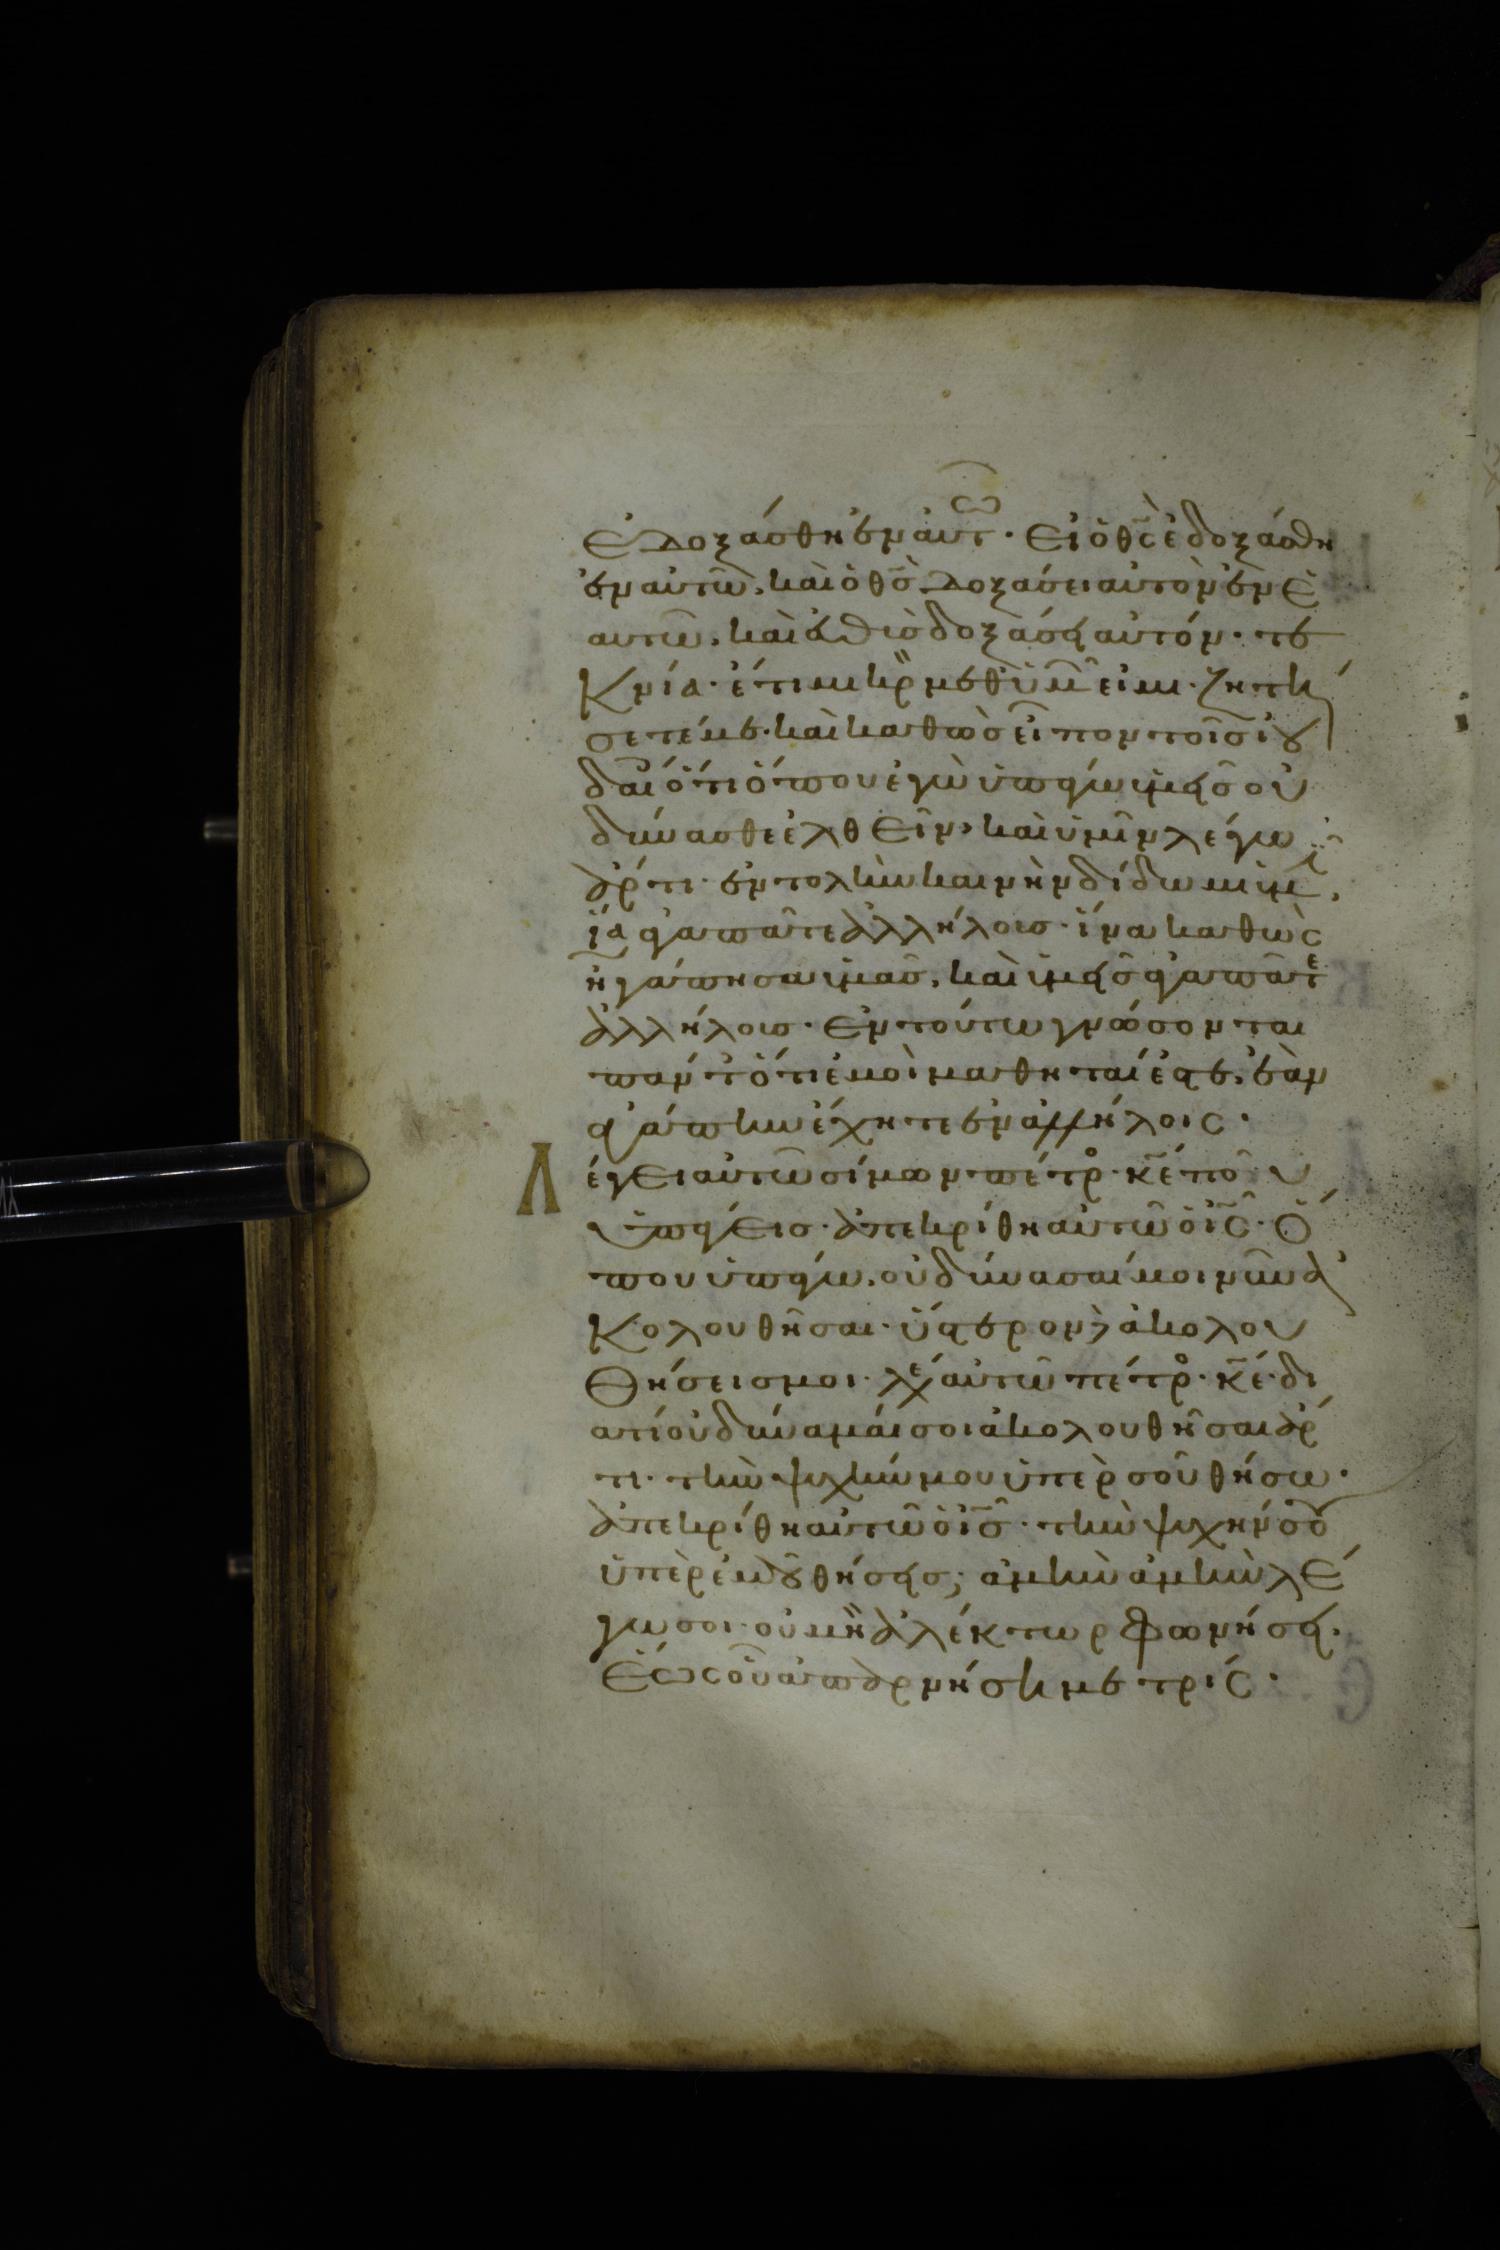 ἐδοξάσθη ἐν αὐτῶ· Εἰ ὁ θς ἐδοξάσθη
ἐν αὐτῶ, καὶ ὁ θς δοξάσει αὐτὸν ἐν ἑ
αυτῶ, καὶ εὐθὺς δοξάσει αὐτόν· τε
κνία· ἔτι μικρὸν μεθ ὑμῶν εἰμι· ζητή
σετέ με· καὶ καθὼς εἶπον τοῖς ἰου
δαίοις ὅτι ὅπου ἐγὼ ὑπάγω ὑμεῖς οὐ
δύνασθε ἐλθεῖν, καὶ ὑμῖν λέγω
ἄρτι· ἐντολὴν καινὴν δίδωμι ὑμῖν,
ἵνα ἀγαπᾶτε ἀλλήλοις· ἵνα καθὼς
ἠγάπησα ὑμᾶς, καὶ ὑμεῖς ἀγαπᾶτε
ἀλλήλοις· ἐν τούτω γνώσονται
πάντες ὅτι ἐμοὶ μαθηταί ἐστε, ἐὰν
ἀγάπην ἔχητε ἐν ἀλλήλοις·
Λέγει αὐτῶ σίμων πέτρος· κε ποῦ
ὑπάγεις· ἀπεκρίθη αὐτῶ ὁ ις· ὅ
που ὑπάγω, οὐ δύνασαί μοι νῦν ἀ
κολουθῆσαι· ὕστερον δὲ ἀκολου
θήσεις μοι· λέγει αὐτῶ πέτρος· κε· δι
ατί οὐ δύναμαί σοι ἀκολουθῆσαι ἄρ
τι· τὴν ψυχήν μου ὑπὲρ σοῦ θήσω·
ἀπεκρίθη αὐτῶ ὁ ις· τὴν ψυχήν σου
ὑπὲρ ἐμοῦ θήσεις; ἀμὴν ἀμὴν λέ
γω σοι· οὐ μὴ ἀλέκτωρ φωνήσει·
ἕως οὗ ἀπαρνήση με τρίς·